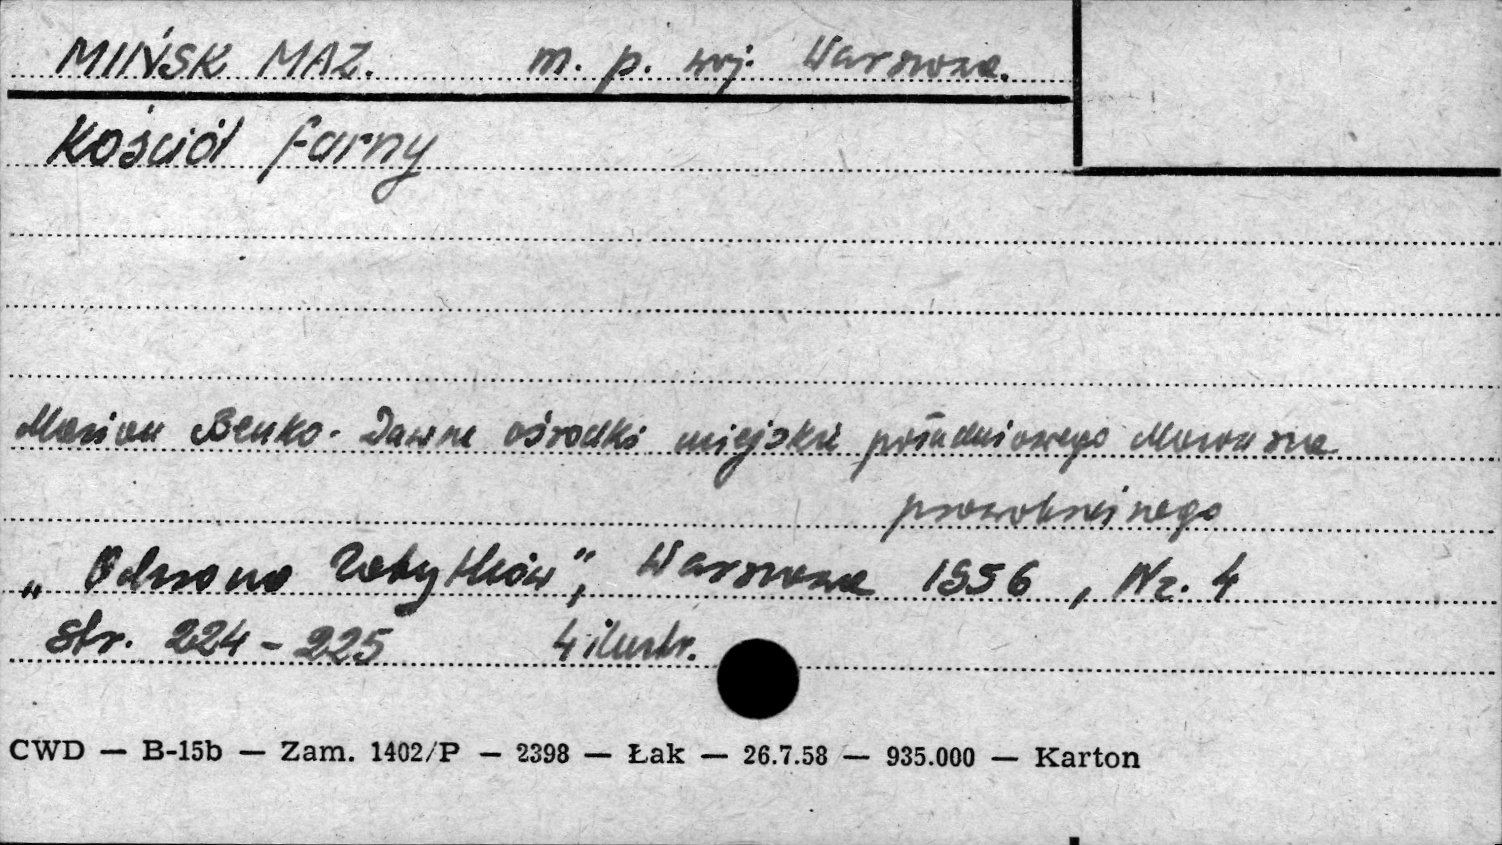 MIŃSK MAZ. m. p. woj. Warszawa.
Kościół farny
Marian Benko. Dawne ośrodki miejskie południowego Mazowsza
prawobrzeżnego
„Ochrona Zabytków”, Warszawa 1956, Nr. 4
str. 224-225 4 ilustr.
CWD — B-15b — Zam. 1402/P — 2398 — Łak — 26.7.58 — 935.000 — Karton